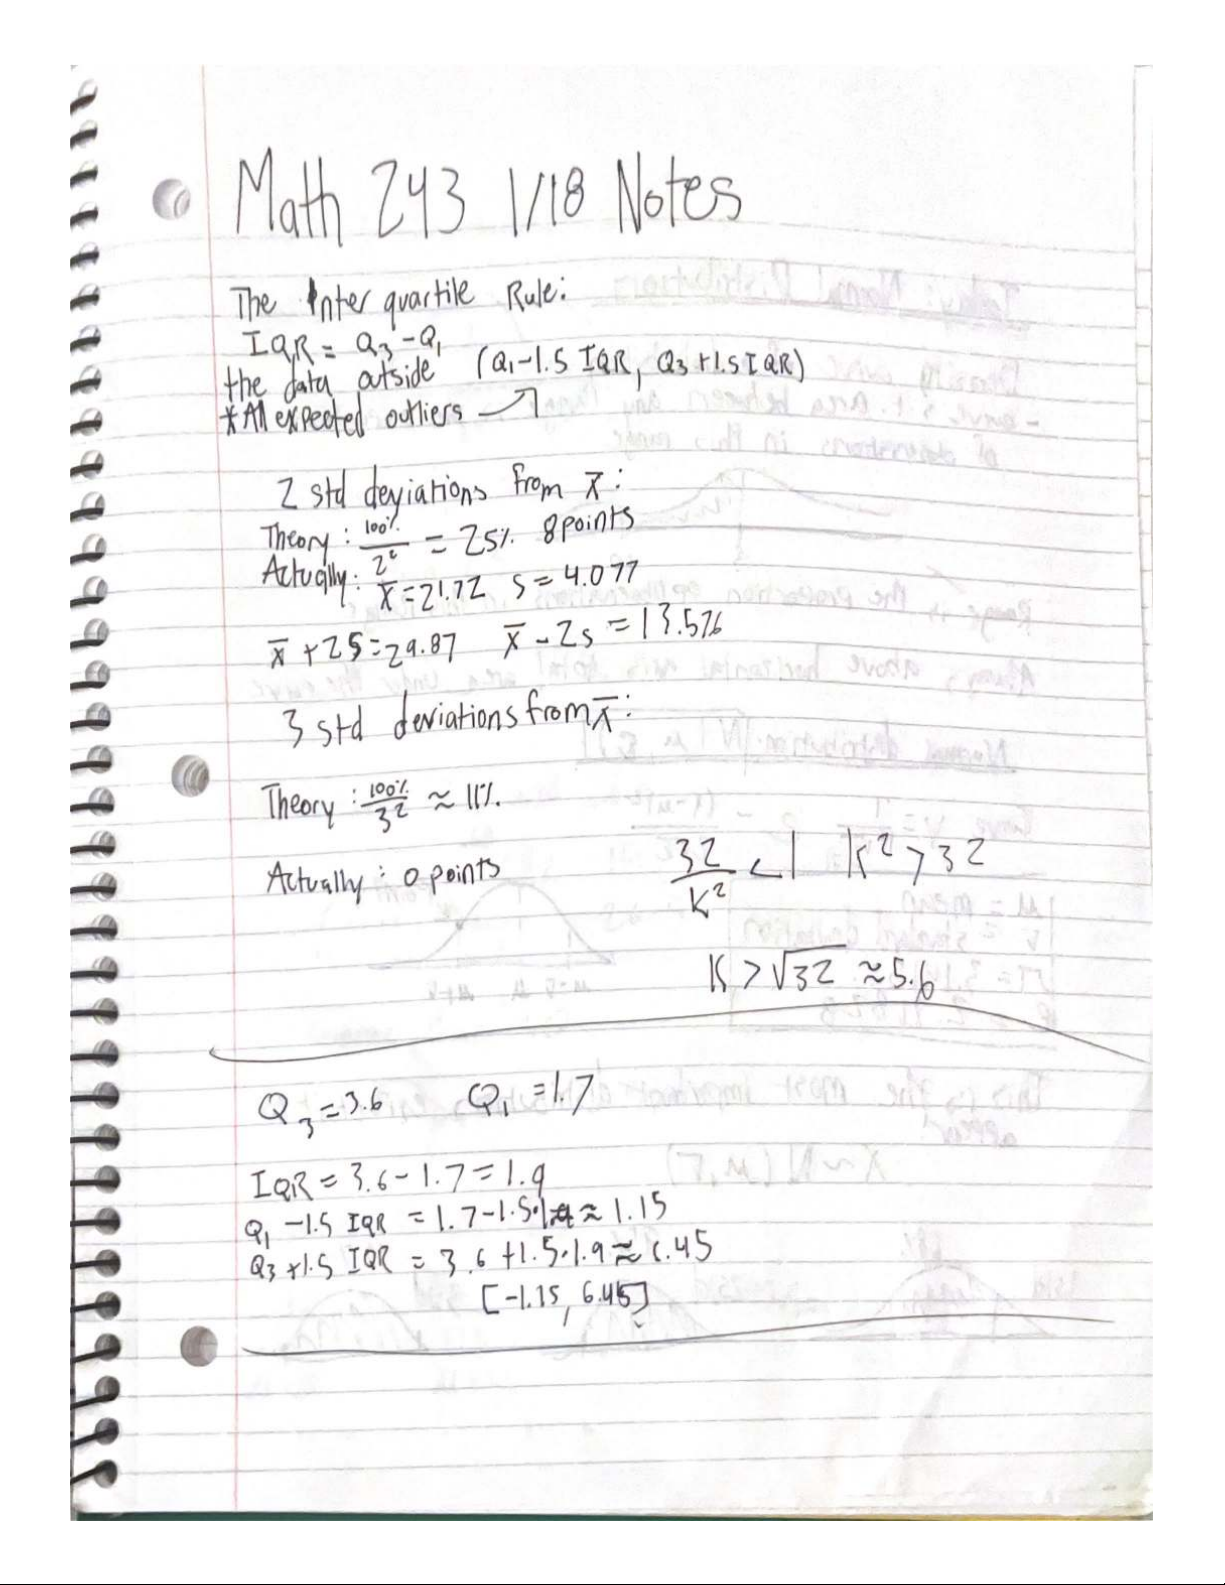 Math 243 1/18 Notes
The Interquartile Rule:
IQR = Q₃ - Q₁
the data outside (Q₁-1.5 IQR, Q₃+1.5 IQR)
*All expected outliers
2 std deviations from x̄:
Theory: 100%/2² = 25% 8 points
Actually: x̄ = 21.72 s = 4.077
x̄ + 2s = 29.87 x̄ - 2s = 13.576
3 std deviations from x̄:
Theory: 100%/3² ≈ 11%
Actually: 0 points
32/K² < 1 K² > 32
K > √32 ≈ 5.6
Q₃ = 3.6 Q₁ = 1.7
IQR = 3.6 - 1.7 = 1.9
Q₁ - 1.5 IQR = 1.7 - 1.5· ≈ 1.15
Q₃ + 1.5 IQR = 3.6 + 1.5·1.9 ≈ 6.45
[-1.15, 6.45]